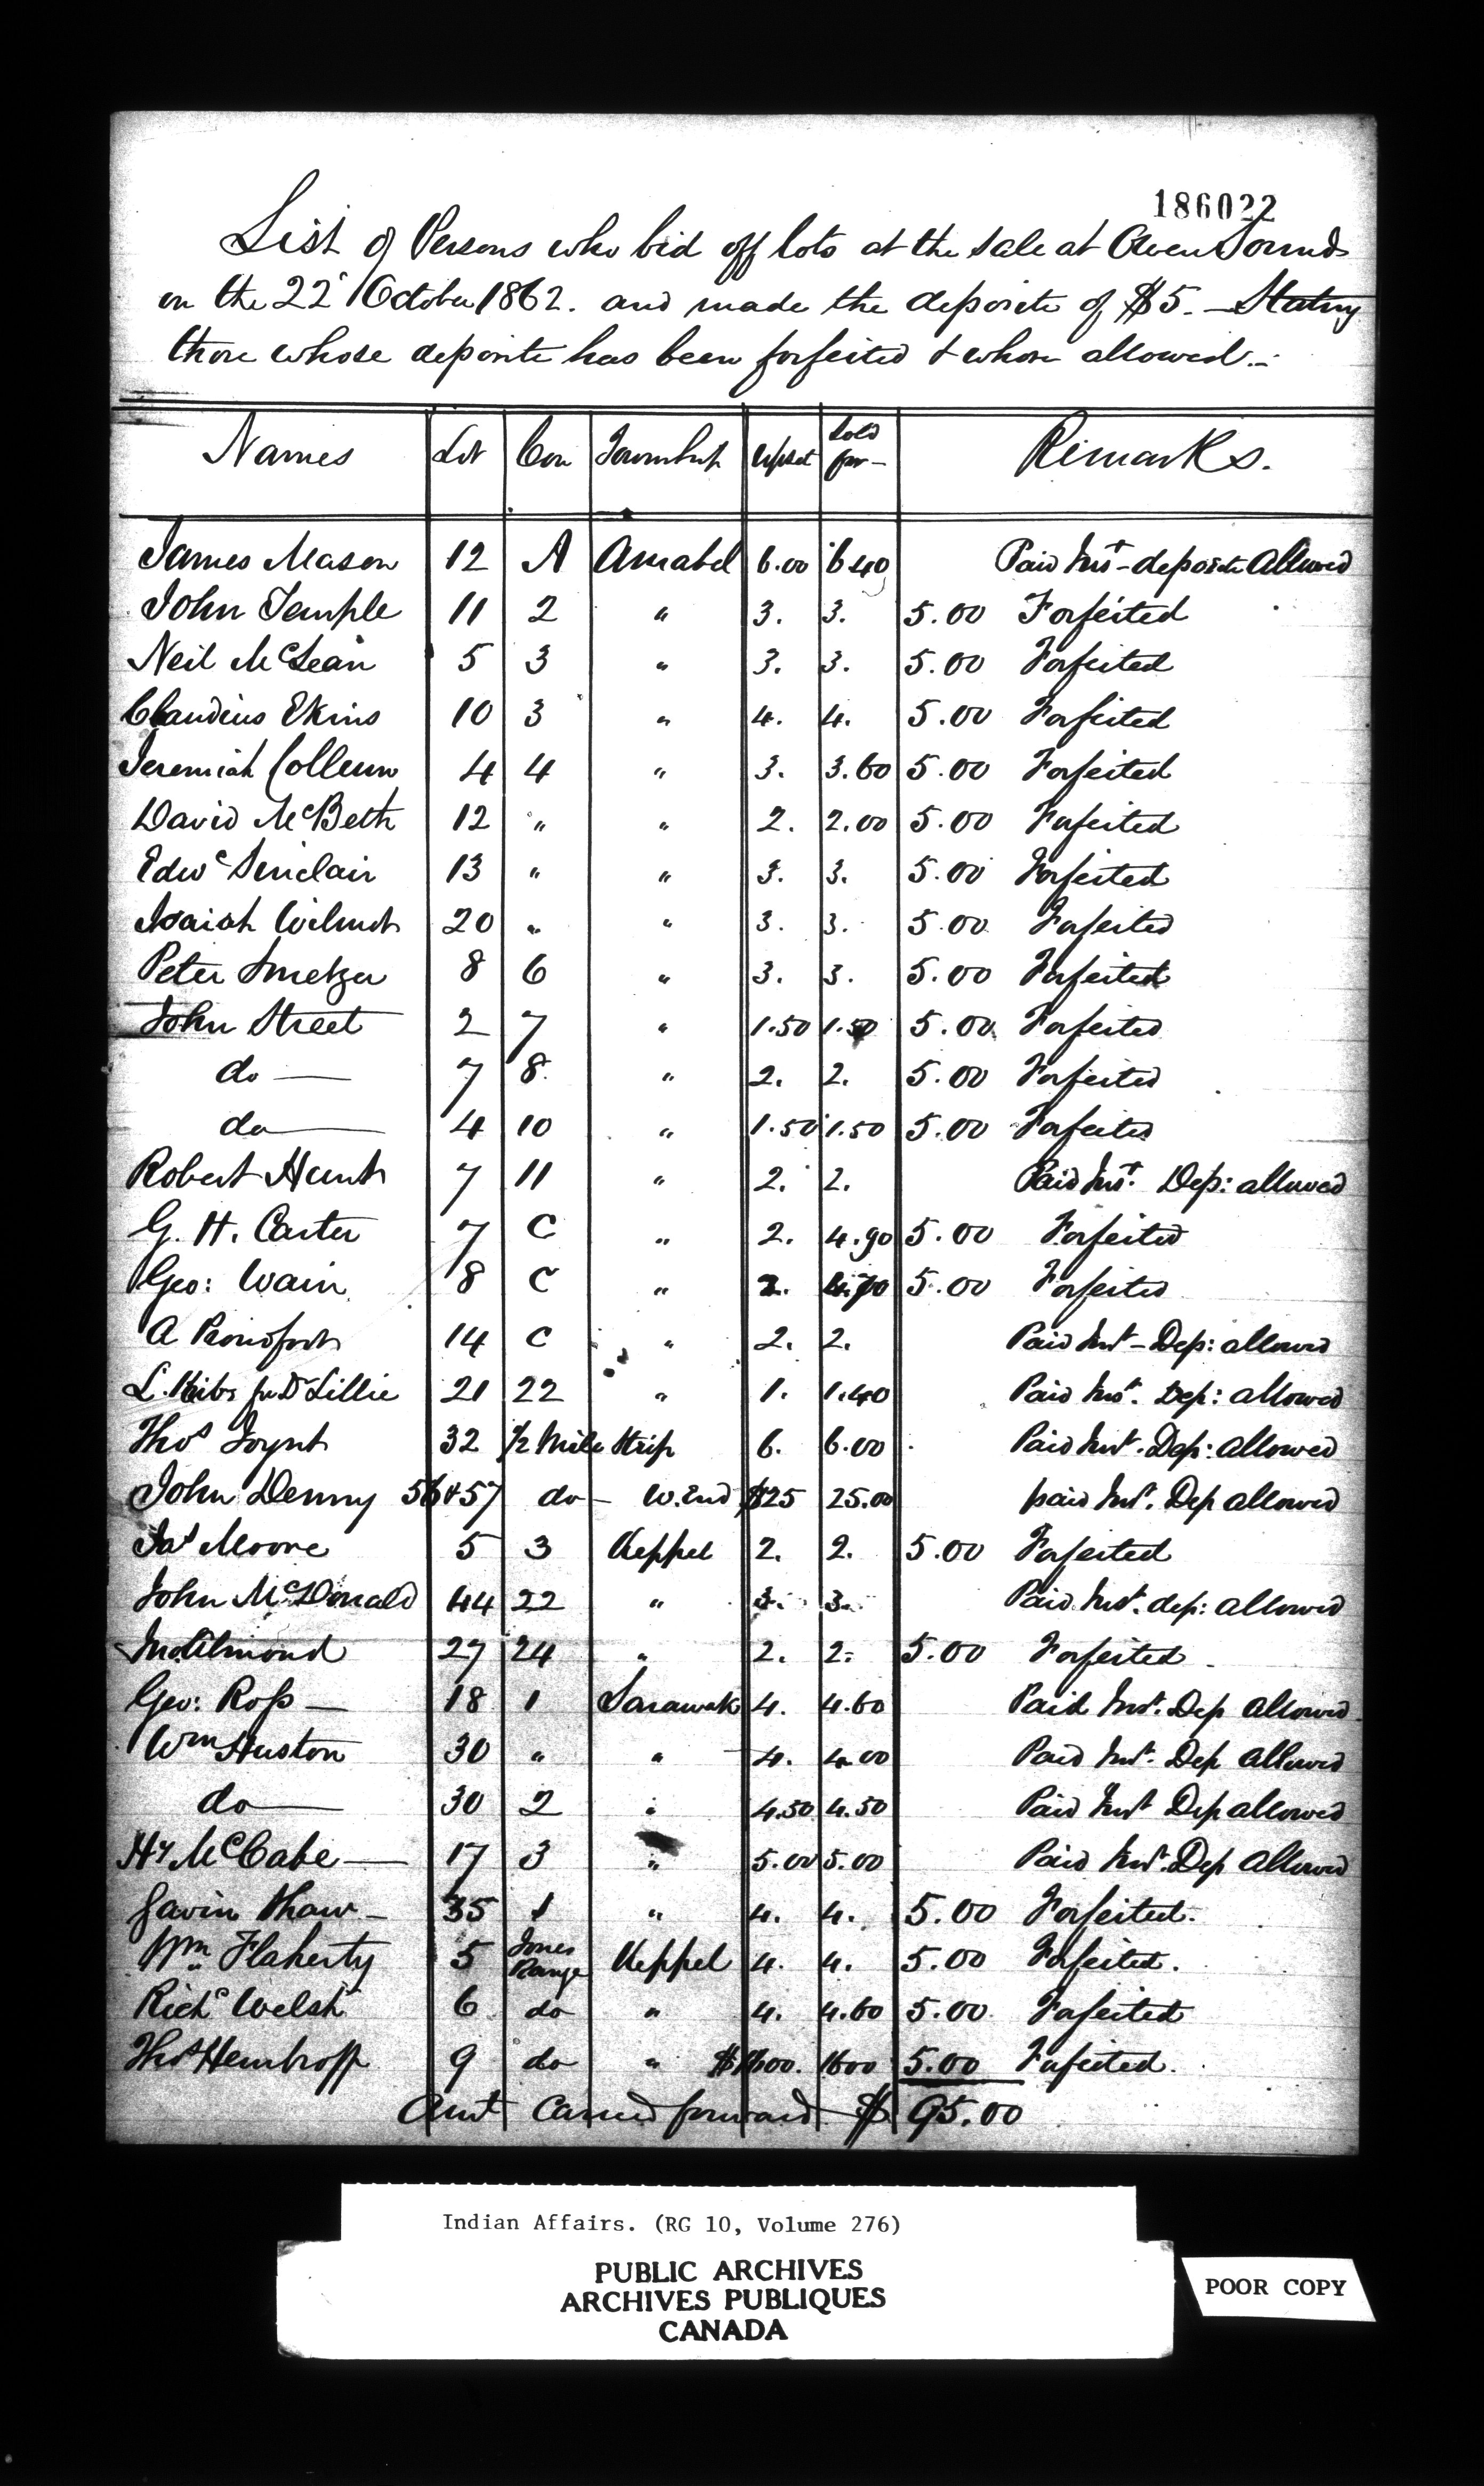 186022
List of Persons who bid off lots at the sale at Owen Sound
on the 22d October 1862. and made the deposite of $5. — Stating
those whose deposite has been forfeited & whose allowed. —
Names Lot Con Township Upset Sold for — Remarks.
James Mason 12 A Amabel 6.00 6 40 Paid Inst - deposite Allowed
John Temple 11 2 " 3. 3. 5.00 Forfeited
Neil McLean 5 3 " 3. 3. 5.00 Forfeited
Claudius Ekins 10 3 " 4. 4. 5.00 Forfeited
Jeremiah 4 4 " 3. 3.60 5.00 Forfeited
David McBeth 12 " " 2. 2.00 5.00 Forfeited
Edwd Sinclair 13 " " 3. 3. 5.00 Forfeited
Isaiah Wilmot 20 " " 3. 3. 5.00 Forfeited
Peter Smetzer 8 6 " 3. 3. 5.00 Forfeited
John Street 2 7 " 1.50 1.50 5.00 Forfeited
do — 7 8 " 2. 2. 5.00 Forfeited
do — 4 10 " 1.50 1.50 5.00 Forfeited
Robert Hunt 7 11 " 2. 2. Paid Inst. Dep: allowed
G. H. Carter 7 C " 2. 4.90 5.00 Forfeited
Geo: Wain 8 C " 2. 5.00 Forfeited
A 14 C " 2. 2. Paid Inst - Dep: allowed
L. for D Lillie 21 22 " 1. 1.40 Paid Inst. Dep: allowed
Thos Joynt 32 1/2 Mile Strip 6. 6.00 Paid Inst. Dep: allowed
John Denny 56&57 do — W. End $25 25.00 paid Inst. Dep allowed
Jas Moore 5 3 Keppel 2. 2. 5.00 Forfeited
John McDonald 44 22 " 3. 3. Paid Inst. dep: allowed
Almond 27 24 " 2. 2. 5.00 Forfeited
Geo: Ross — 18 1 Sarawak 4. 4.60 Paid Inst. Dep allowed
Wm Huston 30 " " 4. 4.00 Paid Inst. Dep allowed
do — 30 2 " 4.50 4.50 Paid Inst Dep allowed
Hy McCabe — 17 3 " 5.00 5.00 Paid Inst. Dep allowed
Gavin Shaw — 35 1 " 4. 4. 5.00 Forfeited.
Wm Flaherty 5 Jones Range Keppel 4. 4. 5.00 Forfeited.
Richd Welsh 6 do " 4. 4.60 5.00 Forfeited
Thos Hembroff 9 do " 5.00 Forfeited.
Amt Carried forward $ 95.00
Indian Affairs. (RG 10, Volume 276)
PUBLIC ARCHIVES
ARCHIVES PUBLIQUES
CANADA
POOR COPY